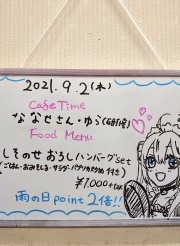 2021.9.2(木)
Cafe Time
ななせさん・ゆら(研修)
Food Menu
しそのせ おろしハンバーグset
(ごはん・おみそしる・サラダ・ 付き)
¥1,000
雨の日point 2倍!!